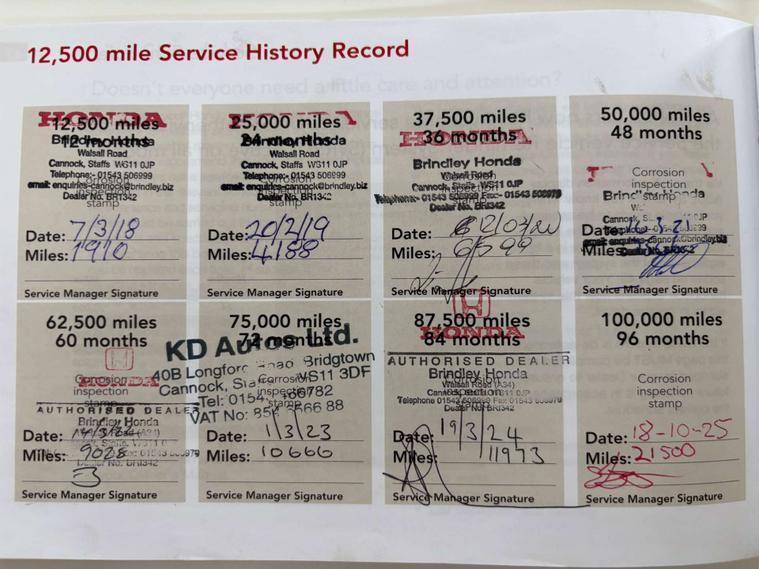 12,500 mile Service History Record
HONDA
12,500 miles
12 months
Brindley Honda
Walsall Road
Cannock, Staffs WS11 0JP
Telephone:- 01543 506999
Corrosion
email: enquiries-cannock@brindley.biz
inspection
stamp
Dealer No. BR1342
Date: 7/3/18
Miles: 1910
Service Manager Signature
HONDA
25,000 miles
24 months
Brindley Honda
Walsall Road
Cannock, Staffs WS11 0JP
Telephone:- 01543 506999
Corrosion
email: enquiries-cannock@brindley.biz
inspection
stamp
Dealer No. BR1342
Date: 20/2/19
Miles: 4188
Service Manager Signature
37,500 miles
HONDA
36 months
Brindley Honda
Walsall Road
Corrosion
Cannock, Staffs WS11 0JP
inspection
Telephone:- 01543 506999 Fax:- 01543 506979
stamp
Dealer No. BR1342
Date:
Miles:
Service Manager Signature
50,000 miles
48 months
Corrosion
inspection
stamp
Date:
Miles:
Service Manager Signature
62,500 miles
60 months
HONDA
Corrosion
inspection
stamp
AUTHORISED DEALER
Brindley Honda
Date:
Miles: 9028
Dealer No. BR1342
Service Manager Signature
75,000 miles
72 months
KD Autos Ltd.
40B Longford Road Bridgtown
Cannock, WS11 3DF
Corrosion
inspection
stamp
Tel: 01543
VAT No:
Date: 1/3/23
Miles: 10666
Service Manager Signature
87,500 miles
HONDA
84 months
AUTHORISED DEALER
Brindley Honda
Walsall Road (A34)
Corrosion
Cannock WS11 0JP
inspection
Telephone 01543 506999 Fax 01543 506979
stamp
Dealer No. BR1342
Date: 19/3/24
Miles: 11973
Service Manager Signature
100,000 miles
96 months
Corrosion
inspection
stamp
Date: 18-10-25
Miles: 21500
Service Manager Signature